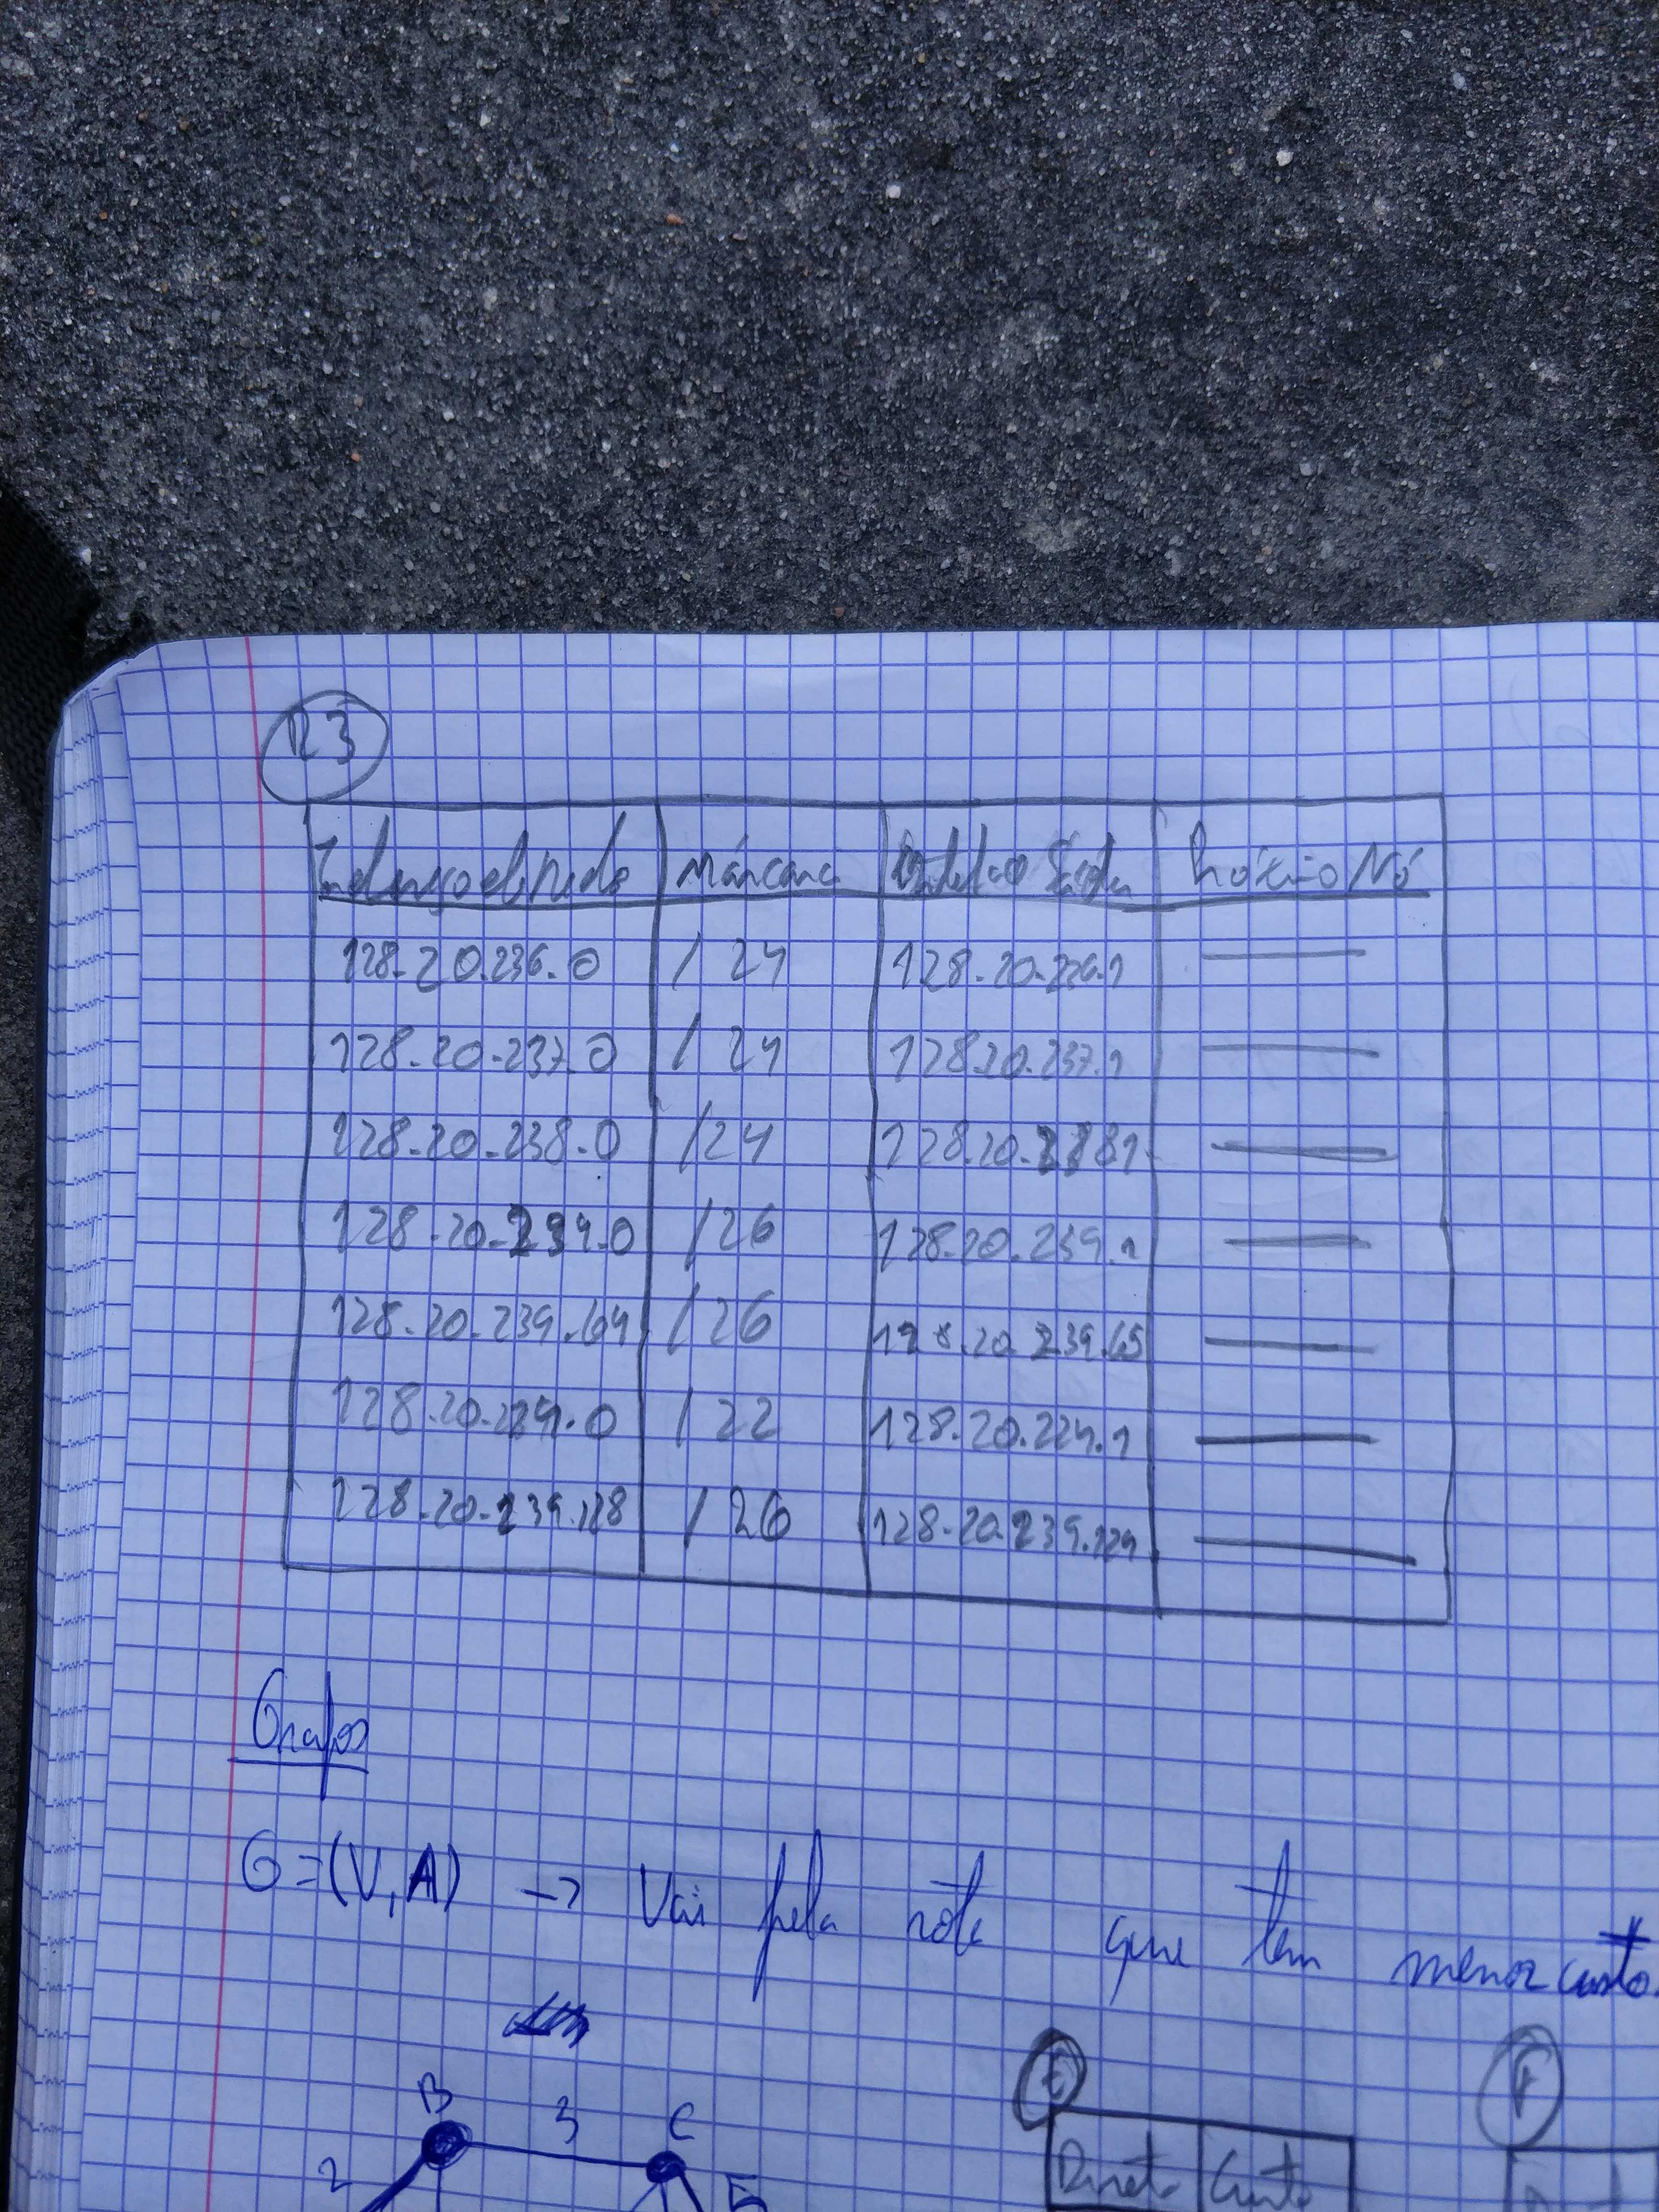 R3
Endereço de Rede Máscara Interface Saída Próximo Nó
128.20.236.0 /24 128.20.236.1 —
128.20.237.0 /24 128.20.237.1 —
128.20.238.0 /24 128.20.238.1 —
128.20.239.0 /26 128.20.239.1 —
128.20.239.64 /26 128.20.239.65 —
128.20.224.0 /22 128.20.224.1 —
128.20.239.128 /26 128.20.239.129 —
Grafos
G=(V,A) -> Vai pela rota que tem menor custo.
B 3 C
2 5
E
Custo
F